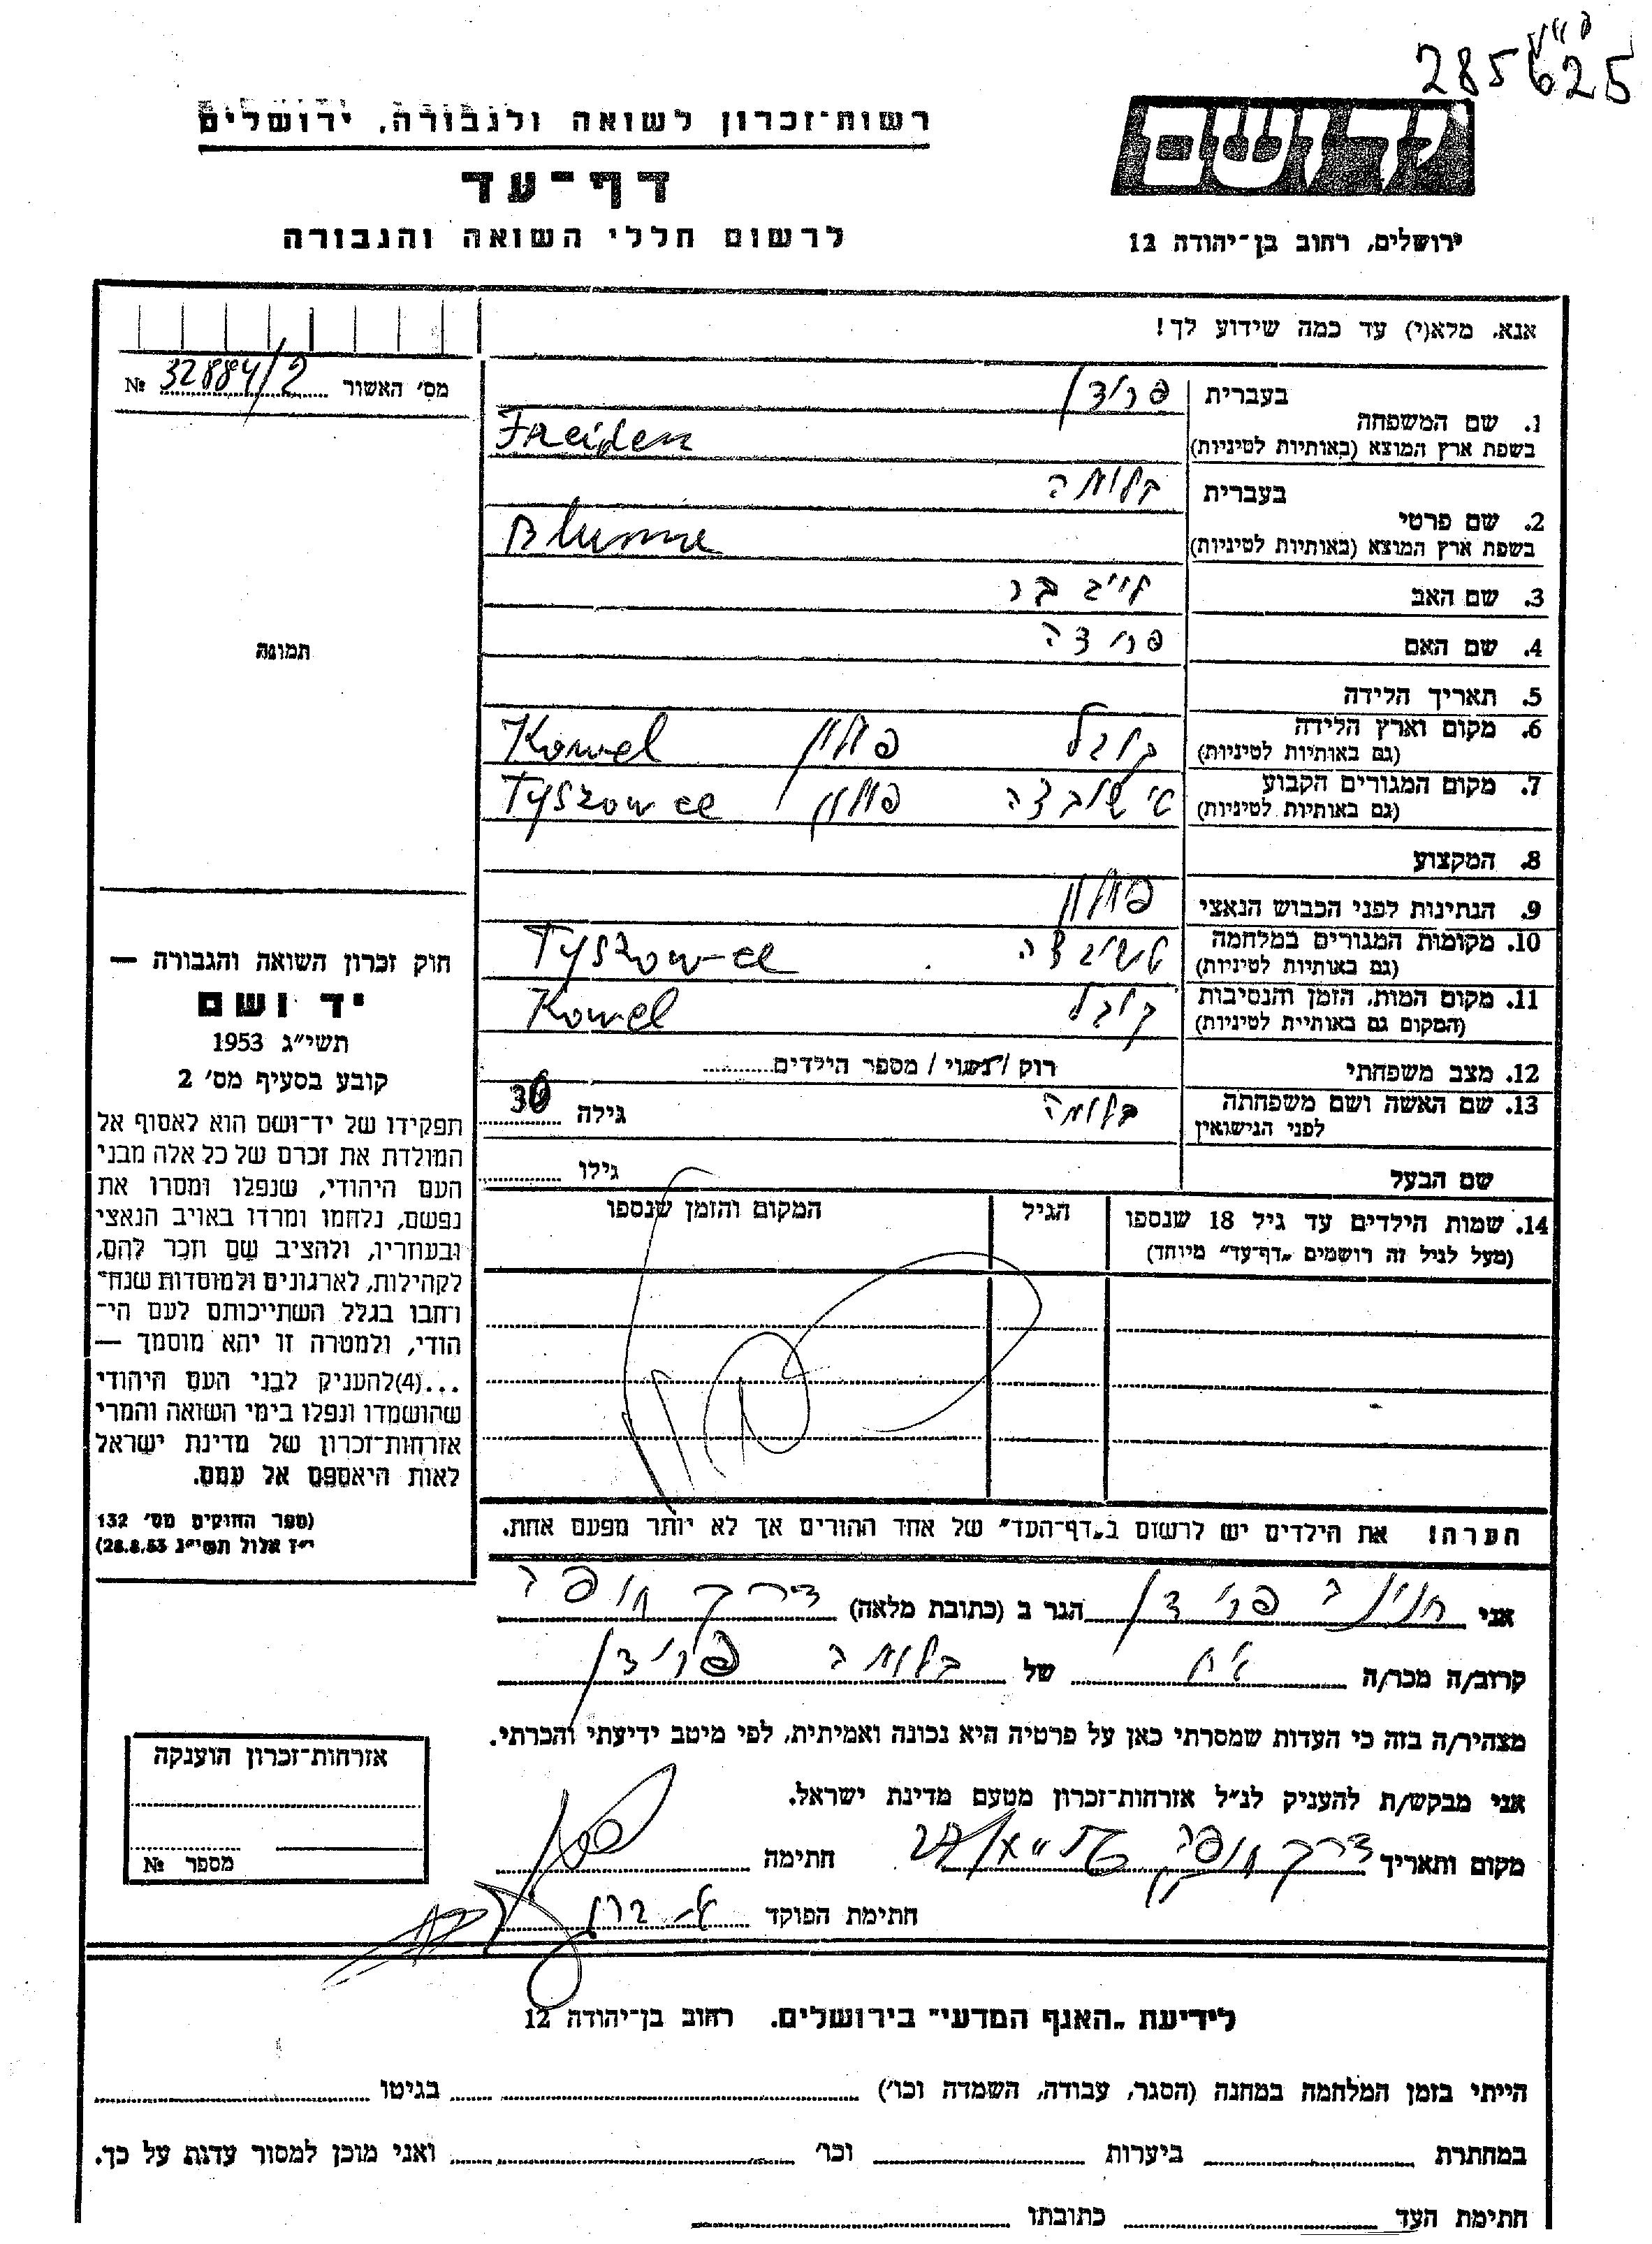 285625
רשות־זכרון לשואה ולגבורה, ירושלים
יד ושם
דף־עד
לרשום חללי השואה והגבורה
ירושלים, רחוב בן־יהודה 12
אנא, מלא(י) עד כמה שידוע לך!
מס׳ האשור № 32884/2
תמונה
בעברית פרידן
1. שם המשפחה
בשפת ארץ המוצא (באותיות לטיניות) Freiden
בעברית בלומה
2. שם פרטי
בשפת ארץ המוצא (באותיות לטיניות) Blume
3. שם האב לייב בר
4. שם האם
5. תאריך הלידה
6. מקום וארץ הלידה קובל פולין Kowel
(גם באותיות לטיניות)
7. מקום המגורים הקבוע טישובצה פולין Tyszowce
(גם באותיות לטיניות)
8. המקצוע
9. הנתינות לפני הכבוש הנאצי פולין
10. מקומות המגורים במלחמה Tyszowce
(גם באותיות לטיניות)
11. מקום המות, הזמן והנסיבות קובל Kowel
(המקום גם באותיות לטיניות)
12. מצב משפחתי רוק / נשוי / מספר הילדים
13. שם האשה ושם משפחתה בלומה גילה 30
לפני הנישואין
שם הבעל גילו
14. שמות הילדים עד גיל 18 שנספו הגיל המקום והזמן שנספו
(מעל לגיל זה רושמים „דף־עד״ מיוחד)
הערה! את הילדים יש לרשום ב„דף־העד״ של אחד ההורים אך לא יותר מפעם אחת.
חוק זכרון השואה והגבורה —
יד ושם
תשי״ג 1953
קובע בסעיף מס׳ 2
תפקידו של יד־ושם הוא לאסוף אל
המולדת את זכרם של כל אלה מבני
העם היהודי, שנפלו ומסרו את
נפשם, נלחמו ומרדו באויב הנאצי
ובעוזריו, ולהציב שם וזכר להם,
לקהילות, לארגונים ולמוסדות שנח־
רחבו בגלל השתייכותם לעם הי־
הודי, ולמטרה זו יהא מוסמך —
...(4)להעניק לבני העם היהודי
שהושמדו ונפלו בימי השואה והמרי
אזרחות־זכרון של מדינת ישראל
לאות היאספם אל עמם.
(ספר החוקים מס׳ 132
י״ז אלול תשי״ג 28.8.53)
אני פרידן הגר ב (כתובת מלאה)
קרוב/ה מכר/ה אח של בלומה פרידן
מצהיר/ה בזה כי העדות שמסרתי כאן על פרטיה היא נכונה ואמיתית, לפי מיטב ידיעתי והכרתי.
אני מבקש/ת להעניק לנ״ל אזרחות־זכרון מטעם מדינת ישראל.
מקום ותאריך חתימה
חתימת הפוקד
אזרחות־זכרון הוענקה
מספר №
לידיעת „האגף המדעי״ בירושלים, רחוב בן־יהודה 12
הייתי בזמן המלחמה במחנה (הסגר, עבודה, השמדה וכו׳) בגיטו
במחתרת ביערות וכו׳ ואני מוכן למסור עדות על כך.
חתימת העד כתובתו